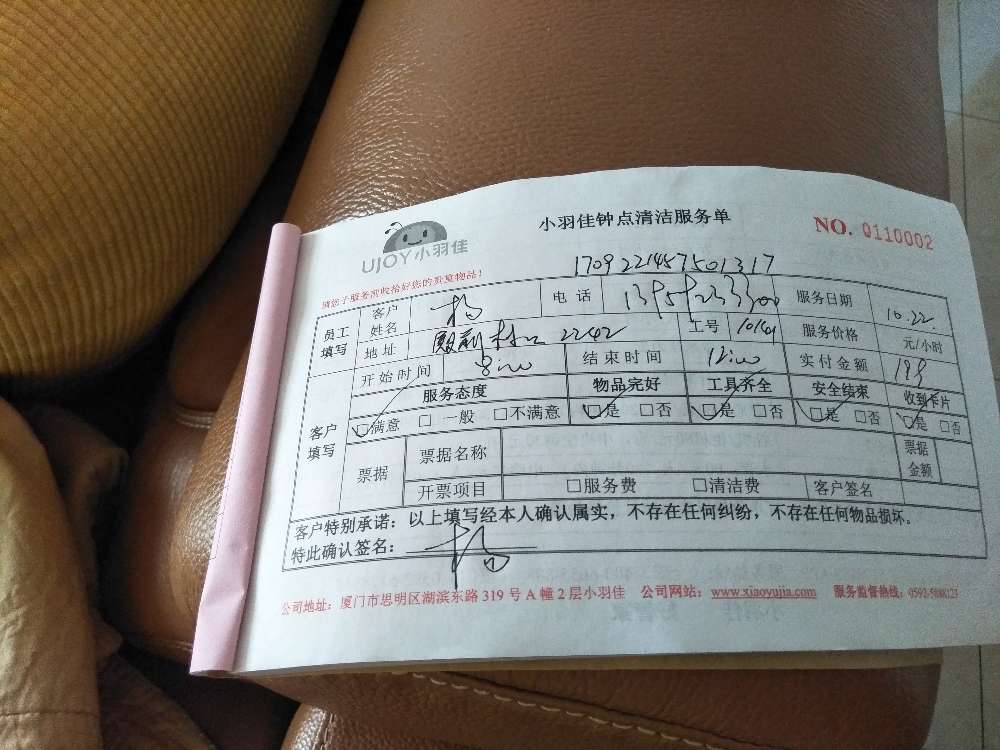 小羽佳钟点清洁服务单
NO. 0110002
UJOY小羽佳
1709221457501317
员工填写 客户姓名 杨 电话 服务日期 10.22
地址 殿前 2242 工号 服务价格 元/小时
开始时间 8:00 结束时间 12:00 实付金额
客户填写 服务态度 物品完好 工具齐全 安全结束 收到卡片
☑满意 □一般 □不满意 ☑是 □否 ☑是 □否 ☑是 □否 ☑是 □否
票据 票据名称 票据金额
开票项目 □服务费 □清洁费 客户签名
客户特别承诺：以上填写经本人确认属实，不存在任何纠纷，不存在任何物品损坏。
特此确认签名： 杨
公司地址：厦门市思明区湖滨东路 319 号 A 幢 2 层小羽佳 公司网站：www.xiaoyujia.com 服务监督热线：